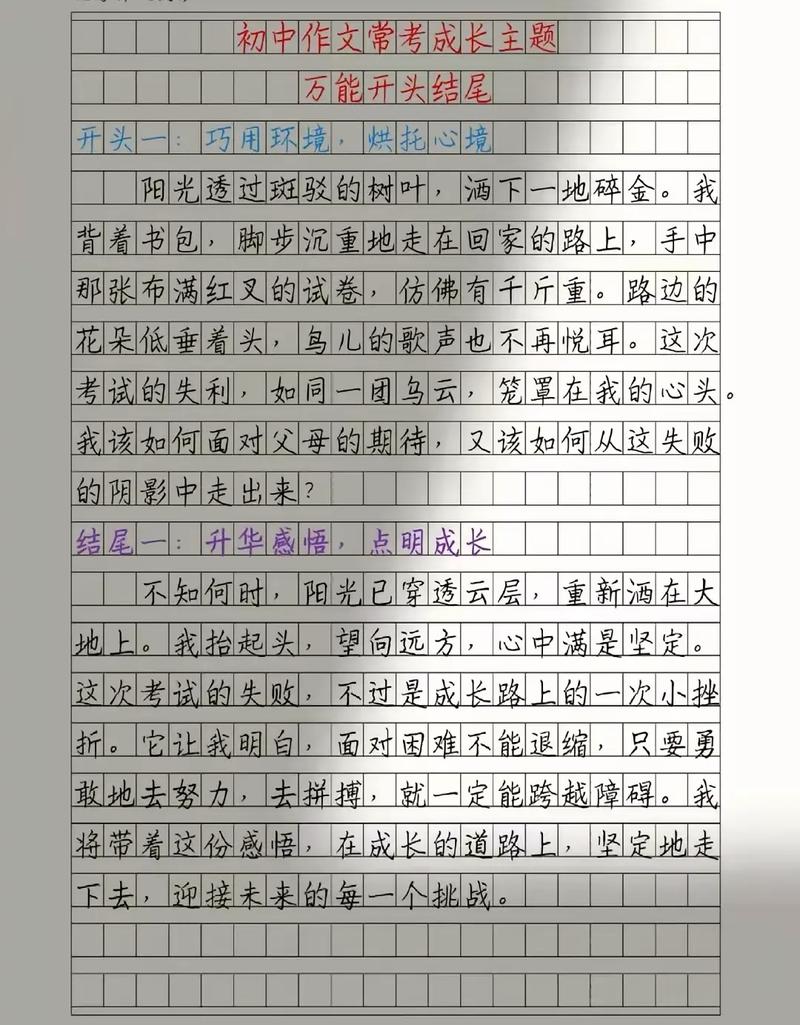 初中作文常考成长主题
万能开头结尾
开头一：巧用环境，烘托心境
阳光透过斑驳的树叶，洒下一地碎金。我
背着书包，脚步沉重地走在回家的路上，手中
那张布满红叉的试卷，仿佛有千斤重。路边的
花朵低垂着头，鸟儿的歌声也不再悦耳。这次
考试的失利，如同一团乌云，笼罩在我的心头。
我该如何面对父母的期待，又该如何从这失败
的阴影中走出来？
结尾一：升华感悟，点明成长
不知何时，阳光已穿透云层，重新洒在大
地上。我抬起头，望向远方，心中满是坚定。
这次考试的失败，不过是成长路上的一次小挫
折。它让我明白，面对困难不能退缩，只要勇
敢地去努力，去拼搏，就一定能跨越障碍。我
将带着这份感悟，在成长的道路上，坚定地走
下去，迎接未来的每一个挑战。